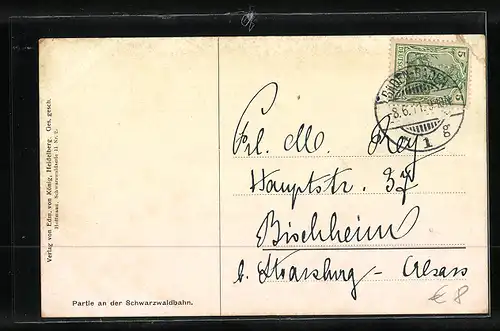 Verlag von Edm. von König, Heidelberg. Ges. gesch.
Hoffmann, Schwarzwaldserie II No. 2.
Partie an der Schwarzwaldbahn.
5 5
BADEN-BADEN
8.6.11. 9-10
1 g
Frl. M. Rey
Hauptstr. 37
Bischheim
b. Strassburg - Elsass
€ 8